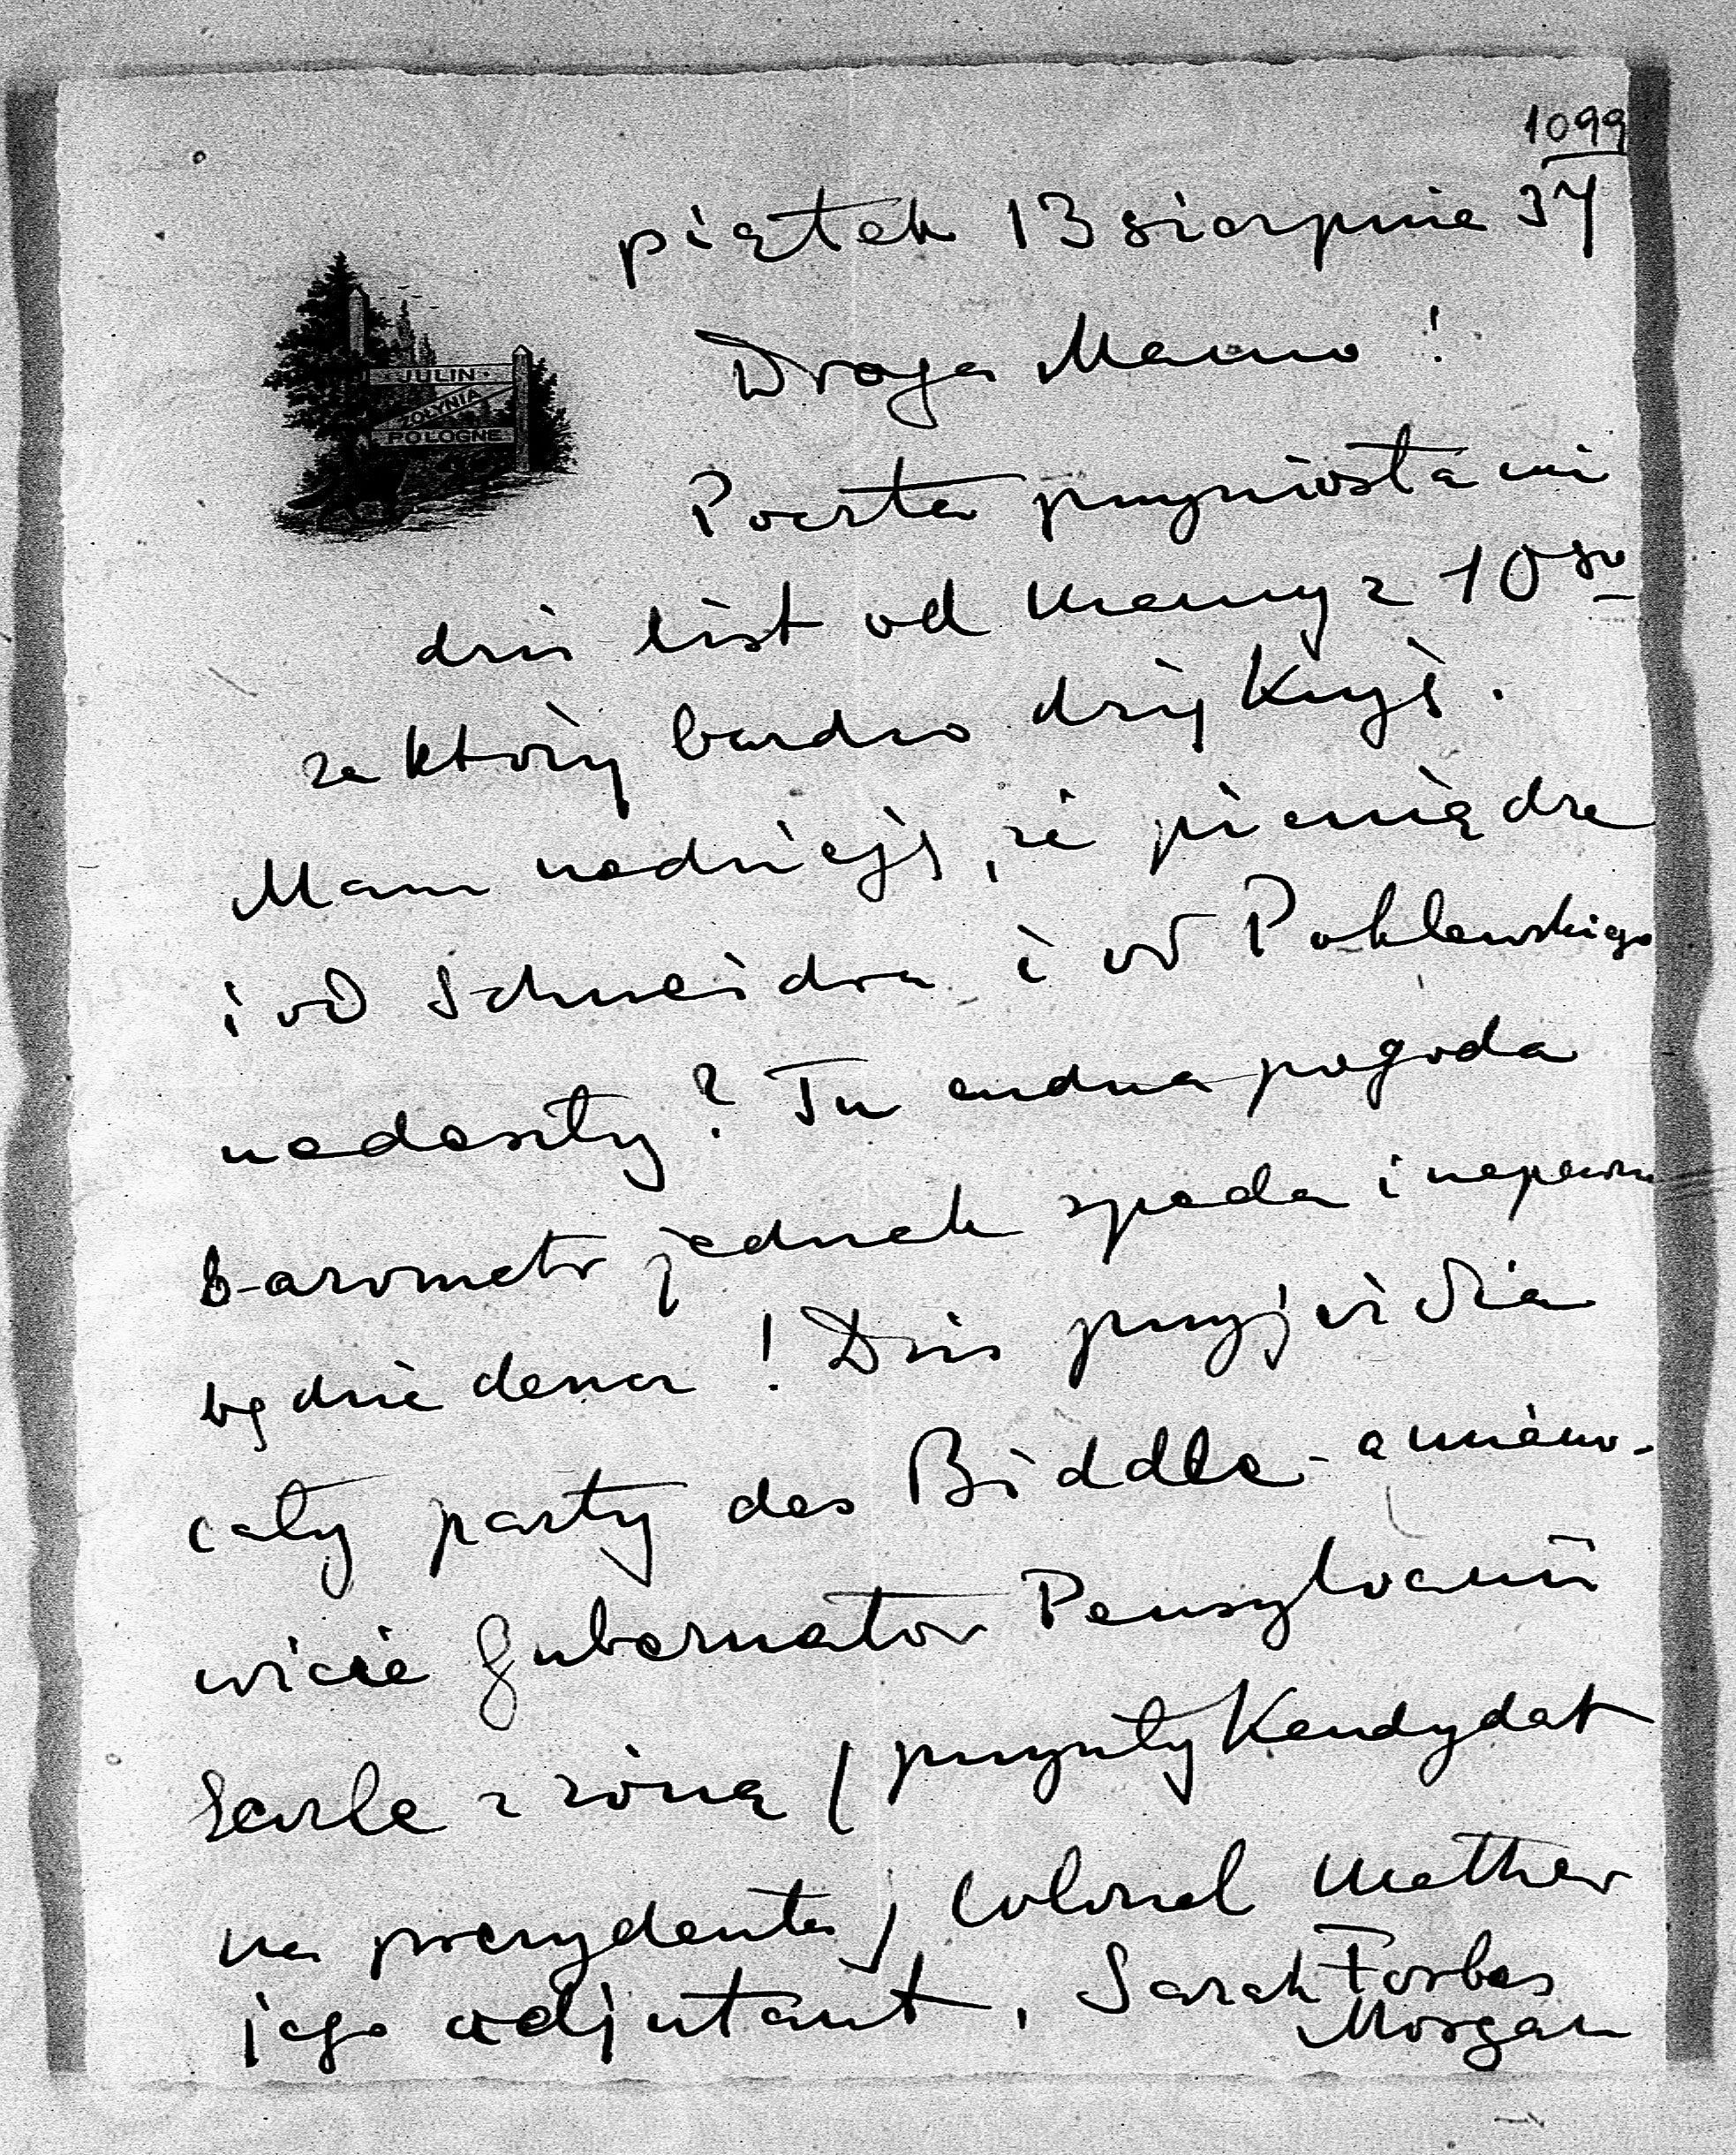 1099
piątek 13 sierpnia 37
JULIN
ZOLYNIA
POLOGNE
Droga Mamo!
Poczta przyniosła mi
dziś list od Mamy z 10go
za który bardzo dziękuję.
Mam nadzieję, że pieniądze
i od Schneidra i od Poklewskiego
nadeszły? Tu cudna pogoda
barometr jednak spada i napewno
będzie deszcz! Dziś przyjeżdża
cały party des Biddle - a miano-
wicie Gubernator Pensylvanii
Earle z żoną (przyszły Kandydat
na prezydenta) Colonel Mather
jego adjutant, Sarah Forbes
Morgan